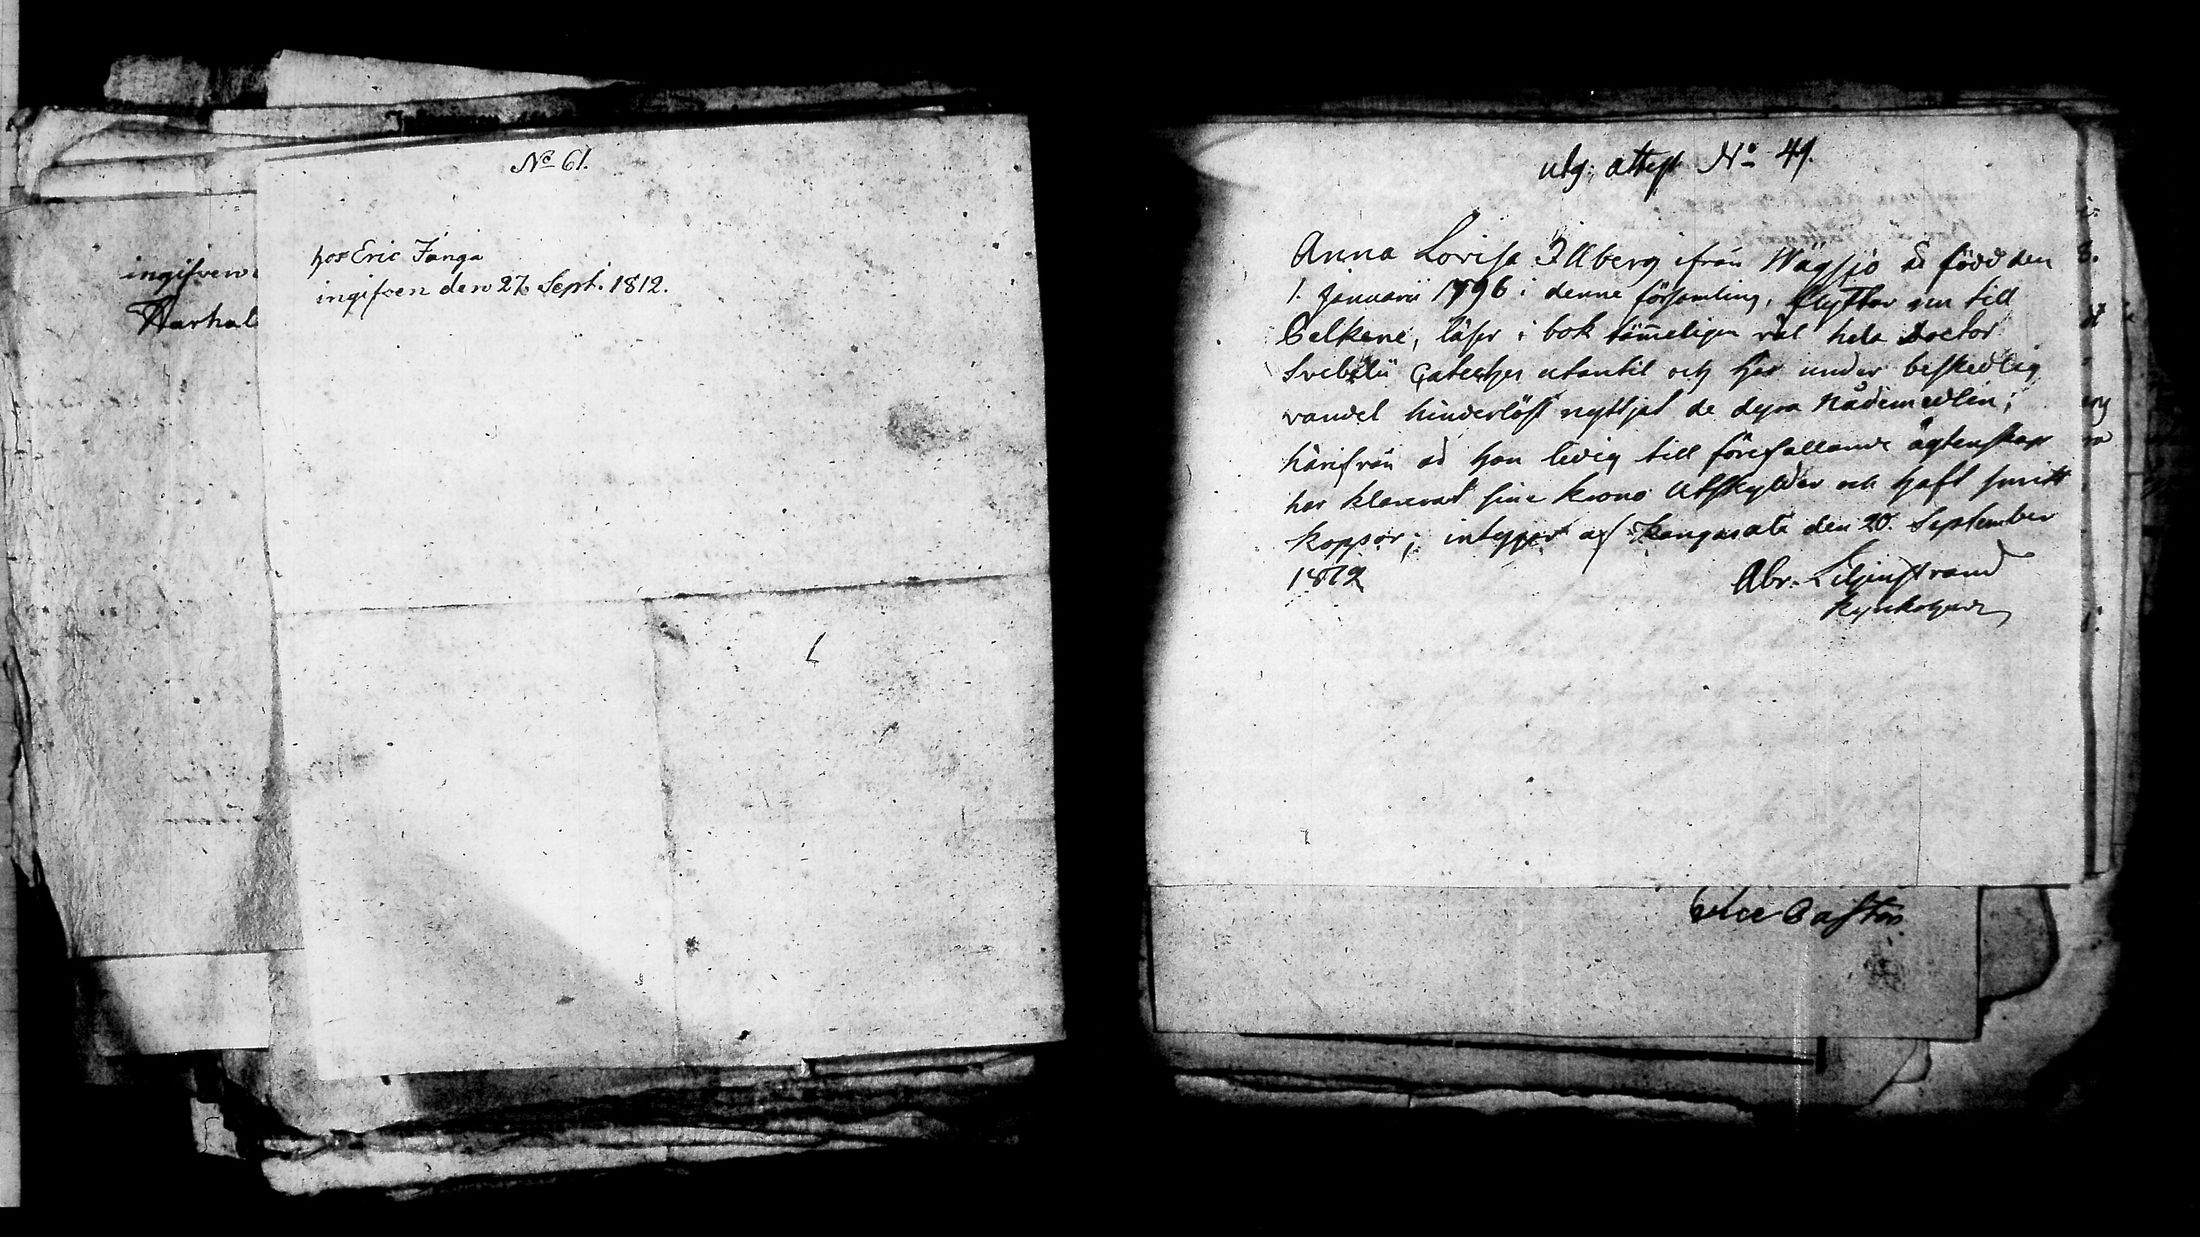 No 61.
hos Eric Janga
ingifven den 27. Sept. 1812.
ingifven
Harhal
utg. attest No 41.
Anna Lovisa Illberg ifrån Wägsjö är född den
1. Januarii 1796 i denne församling, flyttar nu till
Pelkene, läser i bok tämmeligen väl hela Doctor
Svebilii Cateches utantil och har under beskedlig
vandel hinderlöst nyttjat de dyra Nådemedlen;
härifrån är hon ledig till förefallande ägtenskap
har klarerat sine krono Utskylder och haft smitt
koppor; intygar af Kangasala den 20. September
1812
Abr. Liljestrand
Kyrkoherde
Vice Pastor.